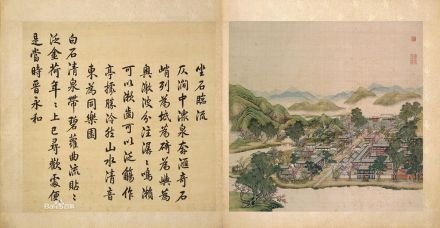 坐石臨流
仄澗中潨泉奔匯奇石
峭列為坻為碕為嶼為
奧激波分注潺〻鳴瀨
可以漱齒可以泛觴作
亭據勝泠然山水清音
東為同樂園
白石清泉帶碧蘿曲流貼〻
泛金荷年〻上巳尋歡處便
是當時晉永和